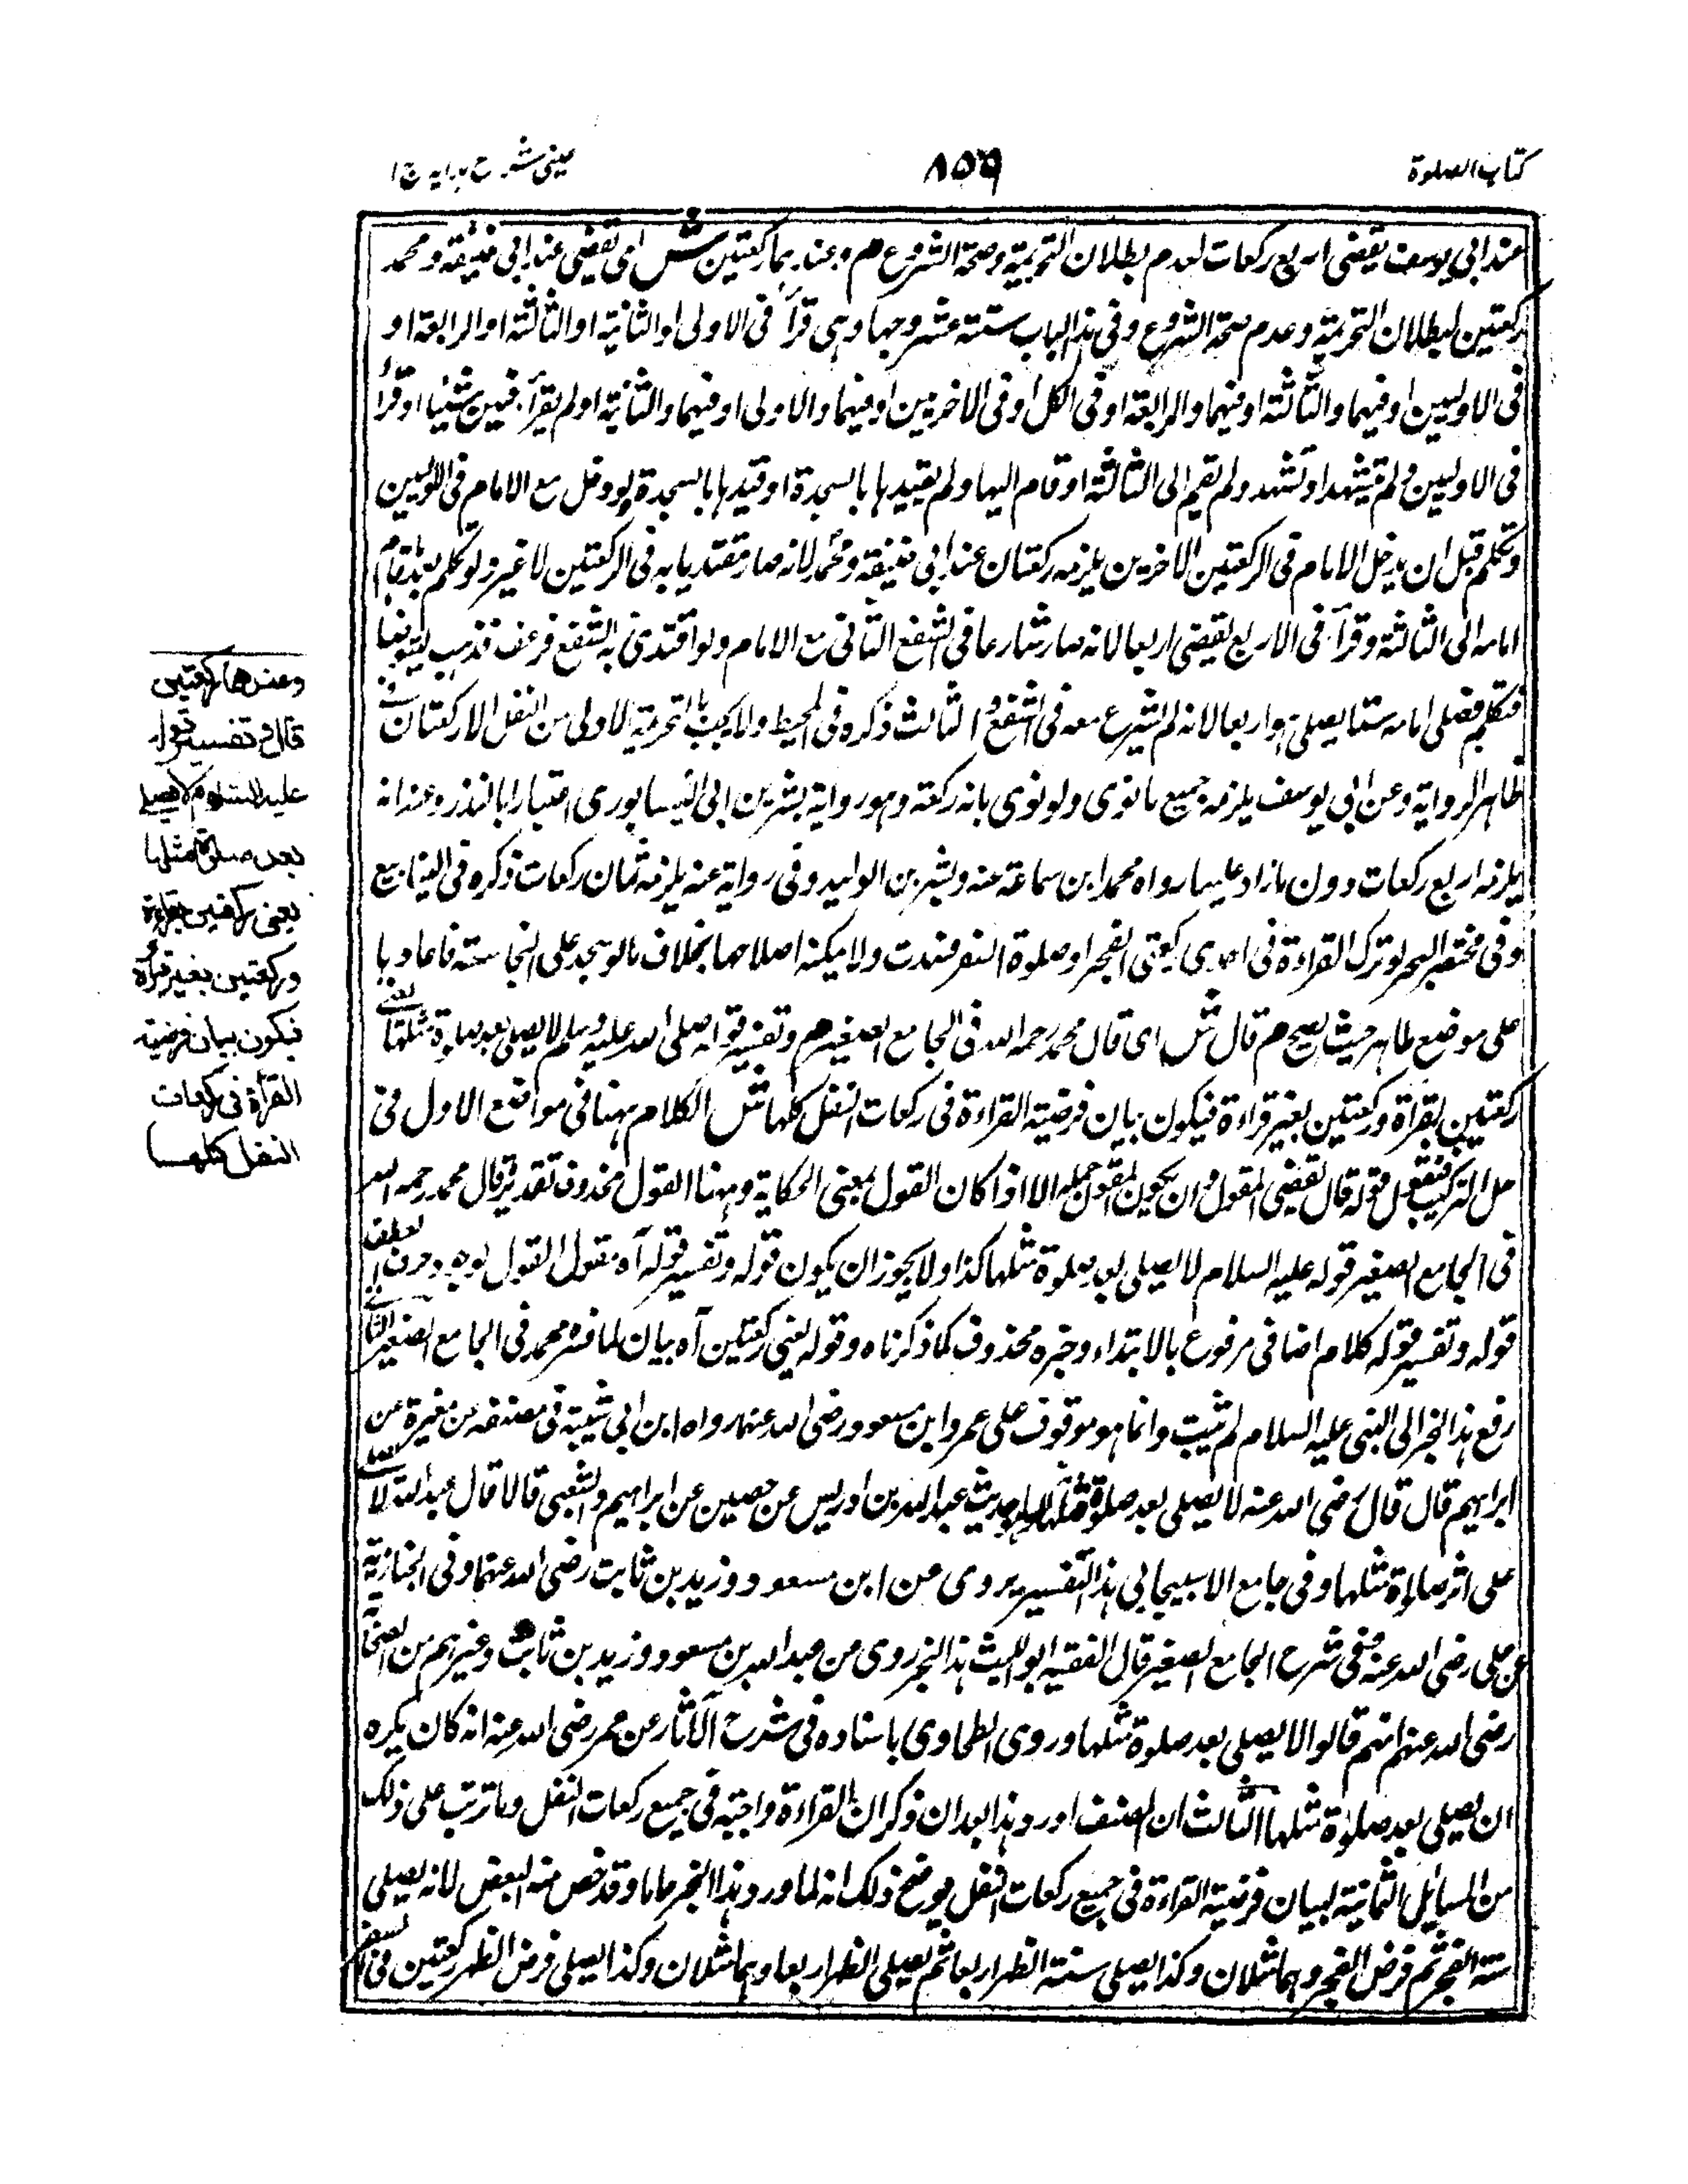 كتاب الصلوة
٨٥٦
عينى شرح هدايه ج ا
عند ابى يوسف يقضى اربع ركعات لعدم بطلان التحريمة وصحة الشروع م وعندهما ركعتين ش اى يقضى عند ابى حنيفة ومحمد
ركعتين لبطلان التحريمة وعدم صحة الشروع وفى هذا الباب ستة عشر وجها وهى قرأ فى الاولى او الثانية او الثالثة او الرابعة او
فى الاوليين او فيهما والثالثة او فيهما والرابعة او فى الكل او فى الاخريين او فيهما والاولى او فيهما والثانية او لم يقرأ فيهن شيئا او قرأ
فى الاوليين ولم يتشهد او تشهد ولم يقم الى الثالثة او قام اليها ولم يقيدها بالسجدة او قيدها بالسجدة ولو دخل مع الامام فى الاوليين
وتكلم قبل ان يدخل الامام فى الركعتين الاخريين يلزمه ركعتان عند ابى حنيفة ومحمد لانه صار مقتديا به فى الركعتين لا غير ولو تكلم بعد ما قام
امامه الى الثالثة وقرأ فى الاربع يقضى اربعا لانه صار شارعا فى الشفع الثانى مع الامام ولو اقتدى به الشفع فرعف فذهب ليتوضأ
فتكلم فصلى امامه ستا يصلى هو اربعا لانه لم يشرع معه فى الشفع الثالث ذكره فى المحيط ولا يجب بالتحريمة الاولى من النفل الا ركعتان فى
ظاهر الرواية وعن ابى يوسف يلزمه جميع ما نوى ولو نوى بانه ركعة وهو رواية بشر بن ابى النيسابورى اعتبارا بالنذر وعنه انه
يلزمه اربع ركعات دون ما زاد عليها رواه محمد ابن سماعة عنه وبشر بن الوليد وفى رواية عنه يلزمه ثمان ركعات ذكره فى الينابيع
وفى مختصر البحر لو ترك القراءة فى احدى ركعتى الفجر او صلوة السفر فسدت ولا يمكنه اصلاحها بخلاف ما لو سجد على النجاسة فاعادها
على موضع طاهر حيث يصح م قال ش اى قال محمد رحمه الله فى الجامع الصغير م وتفسير قوله صلى الله عليه وسلم لا يصلى بعد صلوة مثلها يعنى
ركعتين بقرأة وركعتين بغير قراءة فيكون بيان فرضية القراءة فى ركعات النفل كلها ش الكلام ههنا فى مواضع الاول فى
حل التركيب فنقول قوله قال يقتضى المقول وان يكون المقول جملة الا اذا كان القول بمعنى الحكاية وههنا القول محذوف تقديره قال محمد رحمه الله
فى الجامع الصغير قوله عليه السلام لا يصلى بعد صلوة مثلها كذا ولا يجوز ان يكون قوله وتفسير قوله اه مقول القول لوجود حرف العطف
قوله وتفسير قوله كلام اضافى مرفوع بالابتداء وخبره محذوف كما ذكرناه وقوله يعنى ركعتين اه بيان لما فسره محمد فى الجامع الصغير الثانى
رفع هذا الخبر الى النبى عليه السلام لم يثبت وانما هو موقوف على عمر وابن مسعود رضى الله عنهما رواه ابن ابى شيبة فى مصنفه من مغيرة عن
ابراهيم قال قال رضى الله عنه لا يصلى بعد صلوة مثلها حديث عبد الله بن ادريس عن حصين عن ابراهيم والشعبى قالا قال عبد الله لا يصلى
على اثر صلوة مثلها وفى جامع الاسبيجابى هذا التفسير يروى عن ابن مسعود وزيد بن ثابت رضى الله عنهما وفى الخبازية
عن على رضى الله عنه وفى شرح الجامع الصغير قال الفقيه ابو الليث هذا الخبر روى عن عبد الله بن مسعود وزيد بن ثابت وغيرهم من الصحابة
رضى الله عنهم انهم قالوا لا يصلى بعد صلوة مثلها وروى الطحاوى باسناده فى شرح الآثار عن عمر رضى الله عنه انه كان يكره
ان يصلى بعد صلوة مثلها الثالث ان المصنف اورد هذا بعد ان ذكر ان القراءة واجبة فى جميع ركعات النفل وما ترتب على ذلك
من المسائل الثمانية لبيان فرضية القراءة فى جميع ركعات النفل يوضح ذلك انه لما ورد هذا الخبر عاما وقد خص منه البعض لانه يصلى
سنة الفجر ثم فرض الفجر وهما مثلان وكذا يصلى سنة الظهر اربعا ثم يصلى الظهر اربعا وهما مثلان وكذا يصلى فرض الظهر ركعتين فى السفر
وعندهما ركعتين
قال وتفسير قوله
عليه السلام لا يصلى
بعد صلوة مثلها
يعنى ركعتين بقراءة
وركعتين بغير قرأة
فيكون بيان فرضية
القرأة فى ركعات
النفل كلها